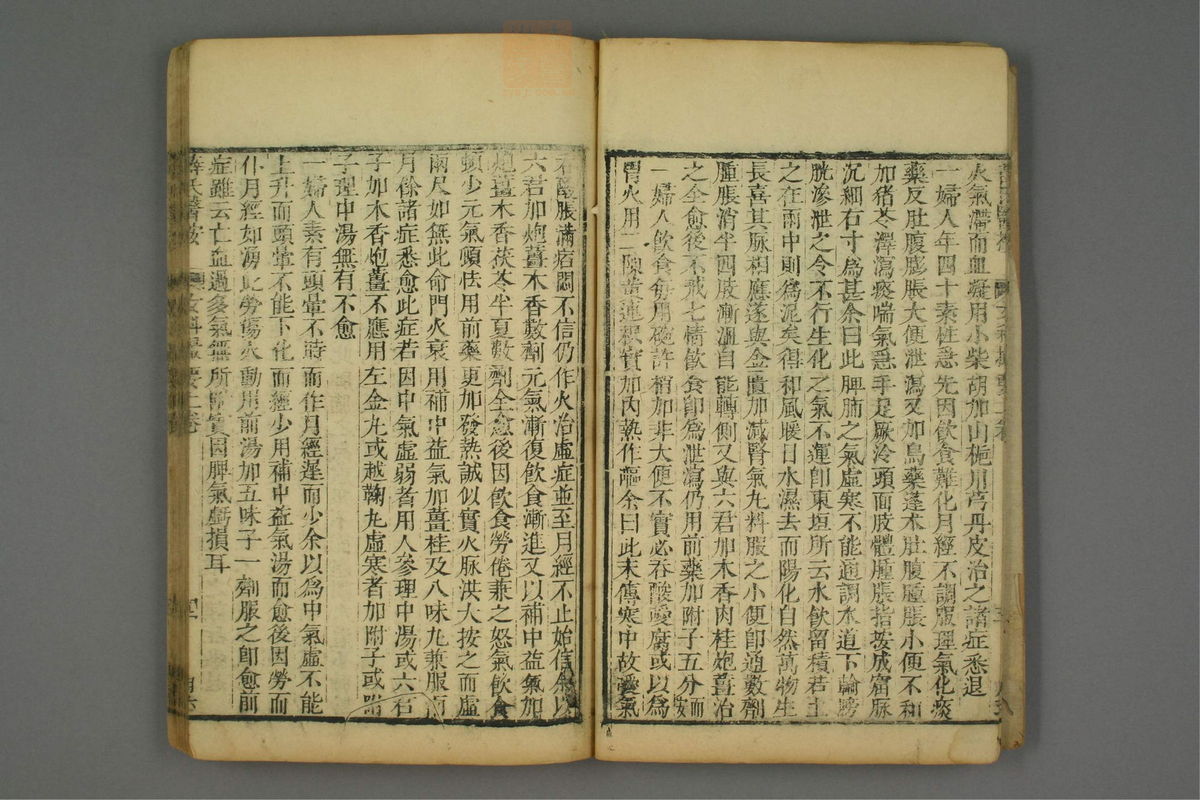 火氣滯而血凝用小柴胡加山梔川芎丹皮治之諸症悉退
一婦人年四十素性急先因飲食難化月經不調服理氣化痰
藥反肚腹膨脹大便泄瀉又加烏藥蓬朮肚腹腫脹小便不利
加猪苓澤瀉痰喘氣急手足厥冷頭面肢體腫脹指按成窟脉
沉細右寸為甚余曰此脾肺之氣虛寒不能通調水道下輸膀
胱滲泄之令不行生化之氣不運即東垣所云水飲留積若土
之在雨中則為泥矣得和風暖日水濕去而陽化自然萬物生
長喜其脉相應遂與金匱加減腎氣丸料服之小便即通數劑
腫脹消半四肢漸溫自能轉側又與六君加木香肉桂炮薑治
之全愈後不戒七情飲食即為泄瀉仍用前藥加附子五分而安
一婦人飲食每用碗許稍加非大便不實必吞酸噯腐或以為
胃火用二陳黃連枳實加內熱作嘔余曰此末傳寒中故噯氣
吞酸脹滿痞悶不信仍作火治虛症並至月經不止始信余以
六君加炮薑木香數劑元氣漸復飲食漸進又以補中益氣加
炮薑木香茯苓半夏數劑全愈後因飲食勞倦兼之怒氣飲食
頓少元氣頓怯用前藥更加發熱誠似實火脉洪大按之而虛
兩尺如無此命門火衰用補中益氣加薑桂及八味丸兼服兩
月餘諸症悉愈此症若因中氣虛弱者用人參理中湯或六君
子加木香炮薑不應用左金丸或越鞠丸虛寒者加附子或附
子理中湯無有不愈
一婦人素有頭暈不時而作月經遲而少余以為中氣虛不能
上升而頭暈不能下化而經少用補中益氣湯而愈後因勞而
仆月經如湧此勞傷火動用前湯加五味子一劑服之即愈前
症雖云亡血過多氣無所歸實因脾氣虧損耳
薛氏醫按 女科撮要上卷